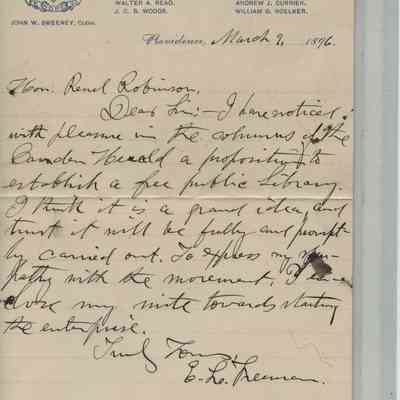 WALTER A. READ,
J. C. B. WOODS.
ANDREW J. CURRIER,
WILLIAM G. ROELKER.
JOHN W. SWEENEY, CLERK.
Providence, March 9, 1896.
Hon. Reuel Robinson.
Dear Sir:- I have noticed
with pleasure in the columns of the
Camden Herald a proposition to
establish a free public Library.
I think it is a grand idea and
trust it will be fully and prompt-
ly carried out. To express my sym-
pathy with the movement, I en-
close my mite towards starting
the enterprise.
Truly Yours,
E. L. Freeman.